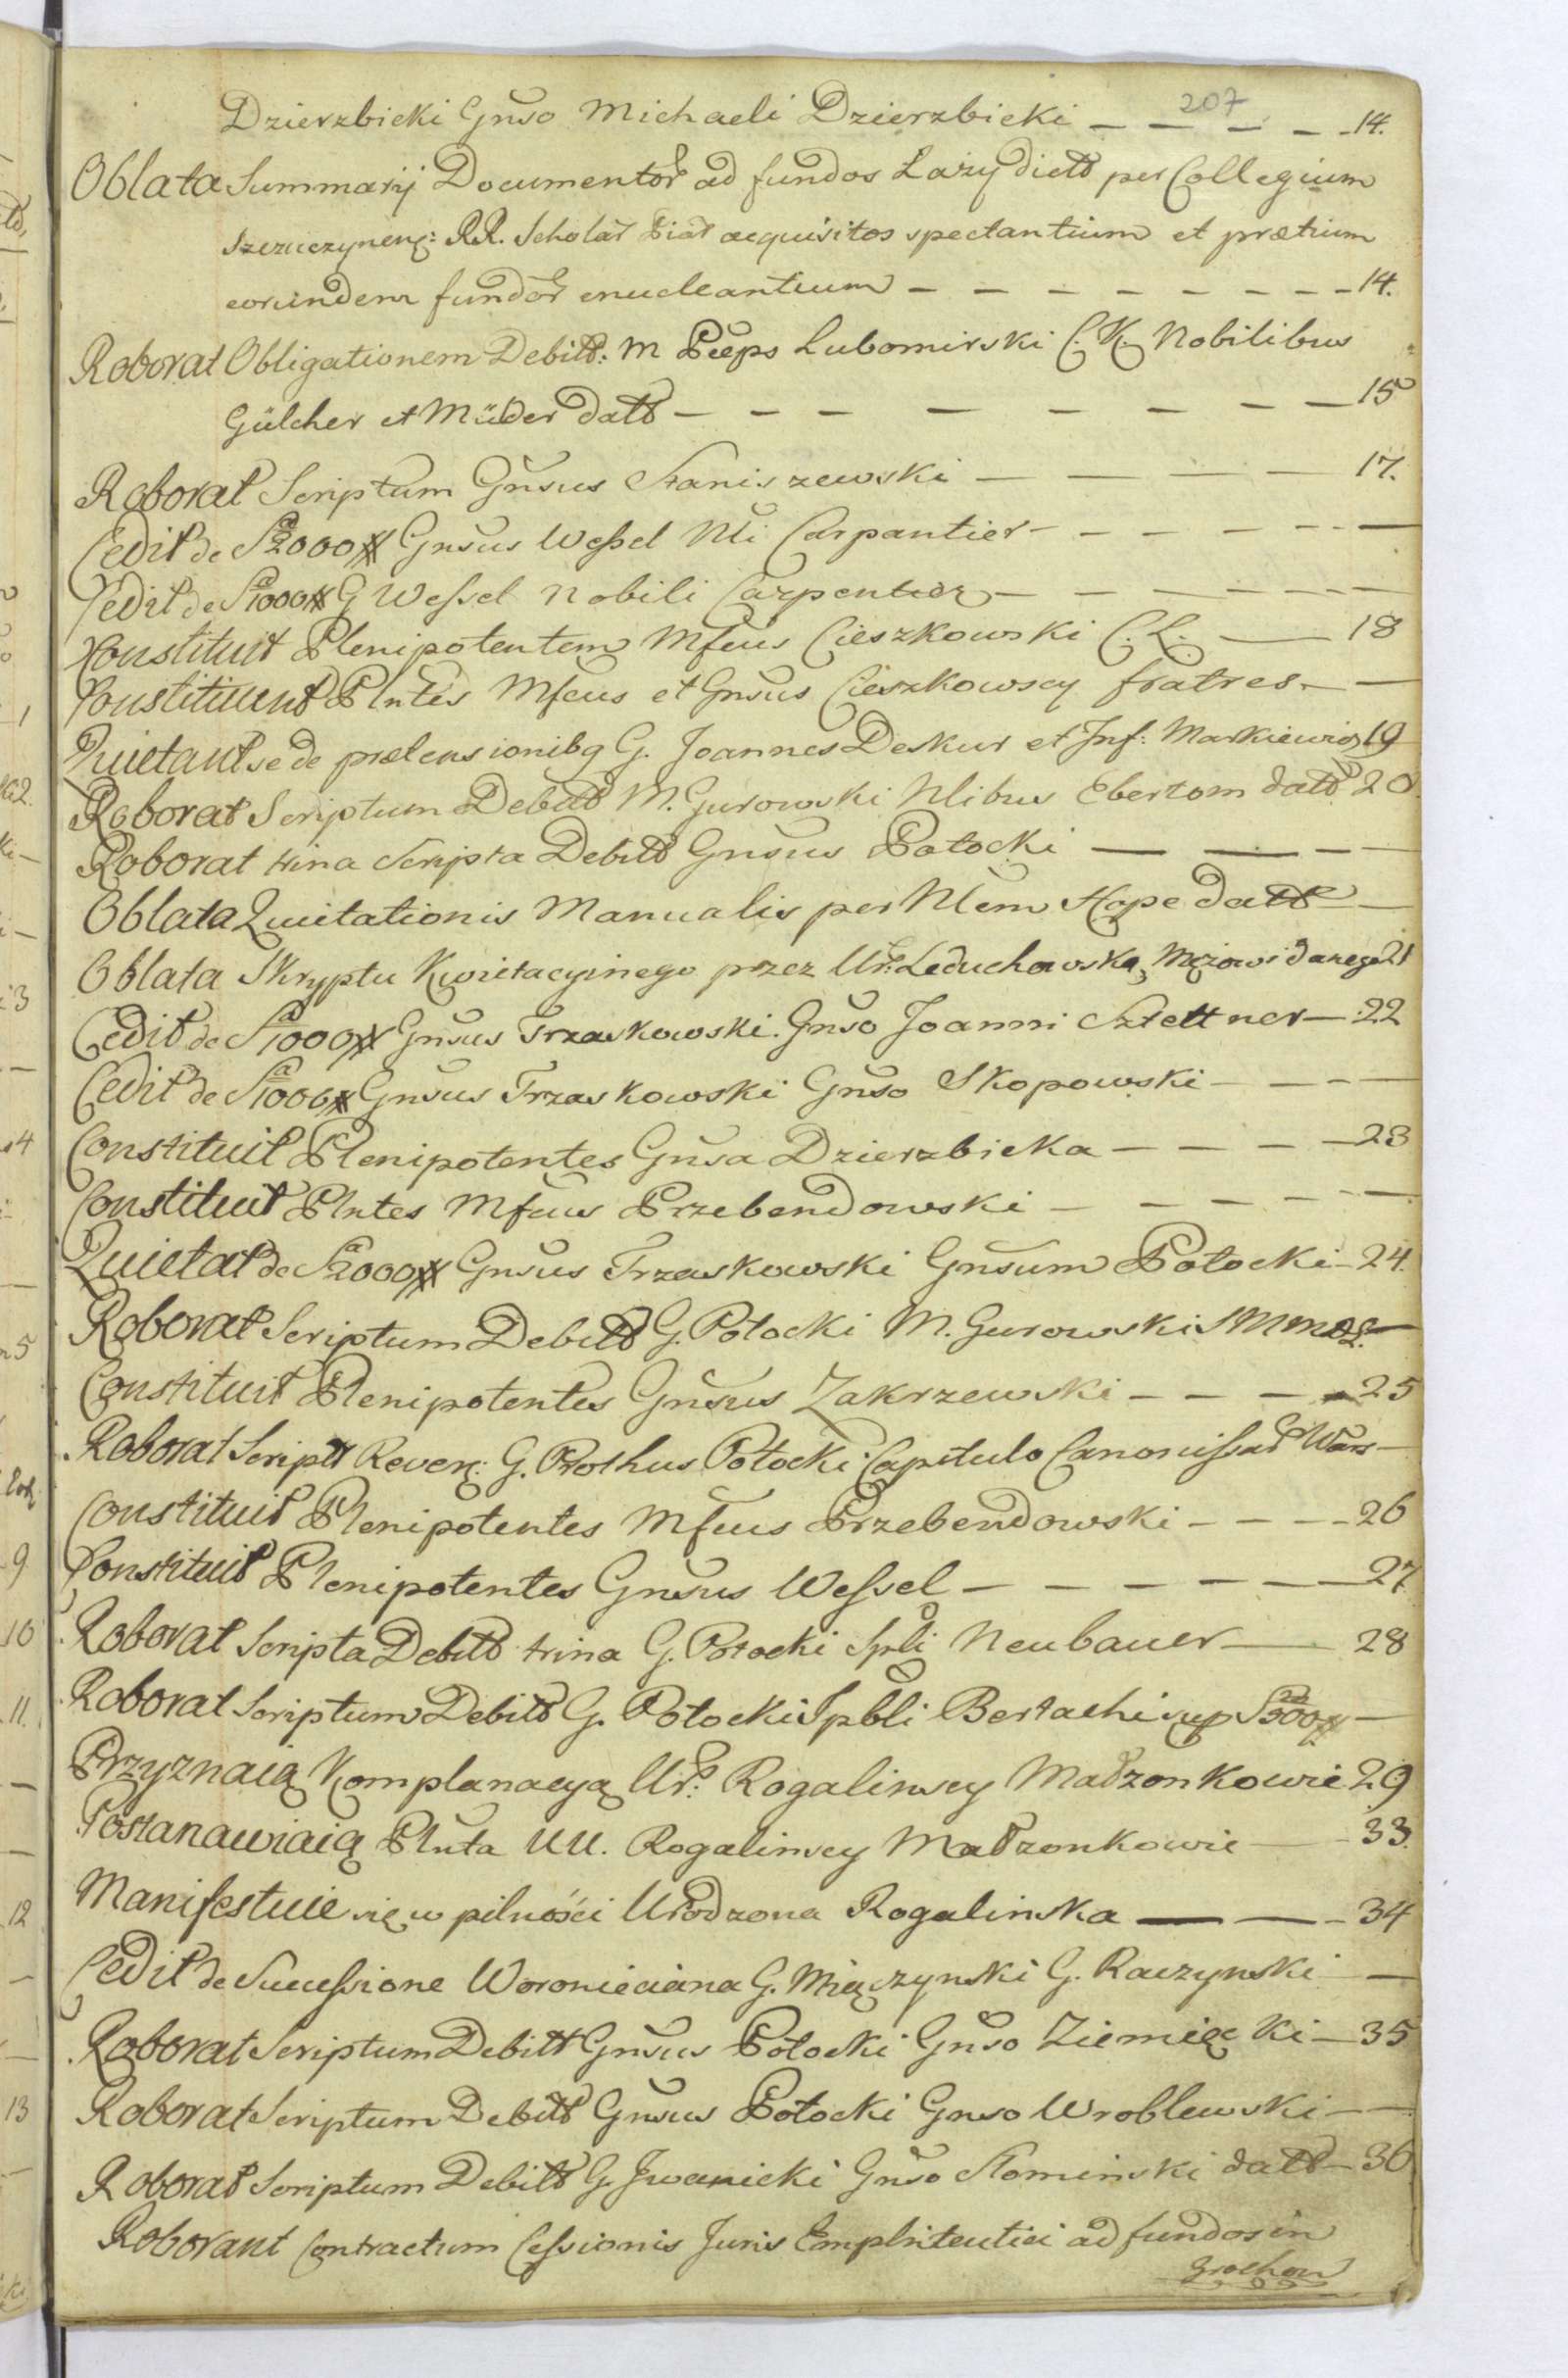 207
Dzierzbicki Gnso Michaeli Dzierzbicki — — — — 14.
Oblata Summarij Documentor ad fundos Łazy dictt per Collegium
Szczuczynens: RR. Scholar Piar acquisitos spectantium et prætium
eorundem fundor enucleantium — — — — — — — — 14.
Roborat Obligationem Debitt: M Pceps Lubomirski C. K. Nobilibus
Gülcher et Mülder datt — — — — — — — — 15
Roborat Scriptum Gnsus Staniszewski — — — — 17.
Cedit de Sa 2000 # Gnsus Wessel Nli Carpantier — — — — — —
Cedit de Sa 1000 # G Wessel Nobili Carpentier — — — — — —
Constituit Plenipotentem Mfcus Cieszkowski C. L. — 18
Constituunt Plntes Mfcus et Gnsus Cieszkowscy fratres — —
Quietant se de prætensionibq G. Joannes Deskur et Inf: Markiewicz 19
Roborat Scriptum Debitt M. Gurowski Nlibus Ebertom datt 20.
Roborat trina Scripta Debitt Gnsus Potocki — — — —
Oblata Quietationis Manualis per Nlem Hope datt —
Oblata Skryptu Kwietacyinego przez Ur. Leduchowską Mężowi danego 21
Cedit de Sa 1000 # Gnsus Trzaskowski Gnso Joanni Sztettner — 22
Cedit de Sa 1000 # Gnsus Trzaskowski Gnso Skopowski — — — —
Constituit Plenipotentes Gnsa Dzierzbicka — — — — 23
Constituit Plntes Mfcus Przebendowski — — — — —
Quietat de Sa 2000 # Gnsus Trzaskowski Gnsum Potocki — 24.
Roborat Scriptum Debitt G. Potocki M. Gurowski —
Constituit Plenipotentes Gnsus Zakrzewski — — — — 25
Roborat Scriptt Revers: G. Prothus Potocki Capitulo Canonissar Wars —
Constituit Plenipotentes Mfcus Przebendowski — — — — 26
Constituit Plenipotentes Gnsus Wessel — — — — — — 27.
Roborat Scripta Debitt trina G. Potocki Spli Neubauer — 28
Roborat Scriptum Debitt G. Potocki Spbli Bertachi sup S 300 # —
Przyznaią Komplanacyą Ur: Rogalinscy Małżonkowie 29
Postanawiaią Plnta UU. Rogalinscy Małżonkowie — 33.
Manifestuie się w pilności Urodzona Rogalinska — — — 34
Cedit de Successione Woronieciana G. Miączynski G. Raczynski — —
Roborat Scriptum Debitt Gnsus Potocki Gnso Ziemięcki — 35
Roborat Scriptum Debitt Gnsus Potocki Gnso Wroblewski — —
Roborat Scriptum Debitt G. Iwanicki Gnso Słominski datt — 36
Roborant Contractum Cessionis Juris Emphiteutici ad fundos in
Grochow